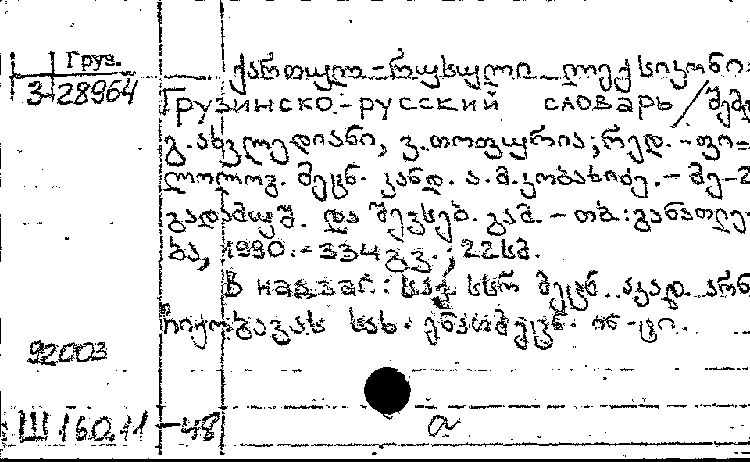 Груз.
ქართულ-რუსული ლექსიკონი=
3-28964
Грузинско-русский словарь / შემდ
გ. ახვლედიანი, ვ. თოფურია; რედ. - ფი=
ლოლოგ. მეცნ. კანდ. ა. მ. კობახიძე. - მე-2
გადამუშ. და შევსებ. გამ. - თბ.: განათლე-
ბა, 1990. - 334 გვ.; 22 სმ.
В надзаг.: საქ სსრ მეცნ. აკად. არნ
ჩიქობავას სახ. ენათმეცნ. ინ-ტი.
92003
Ш 160.11 -48